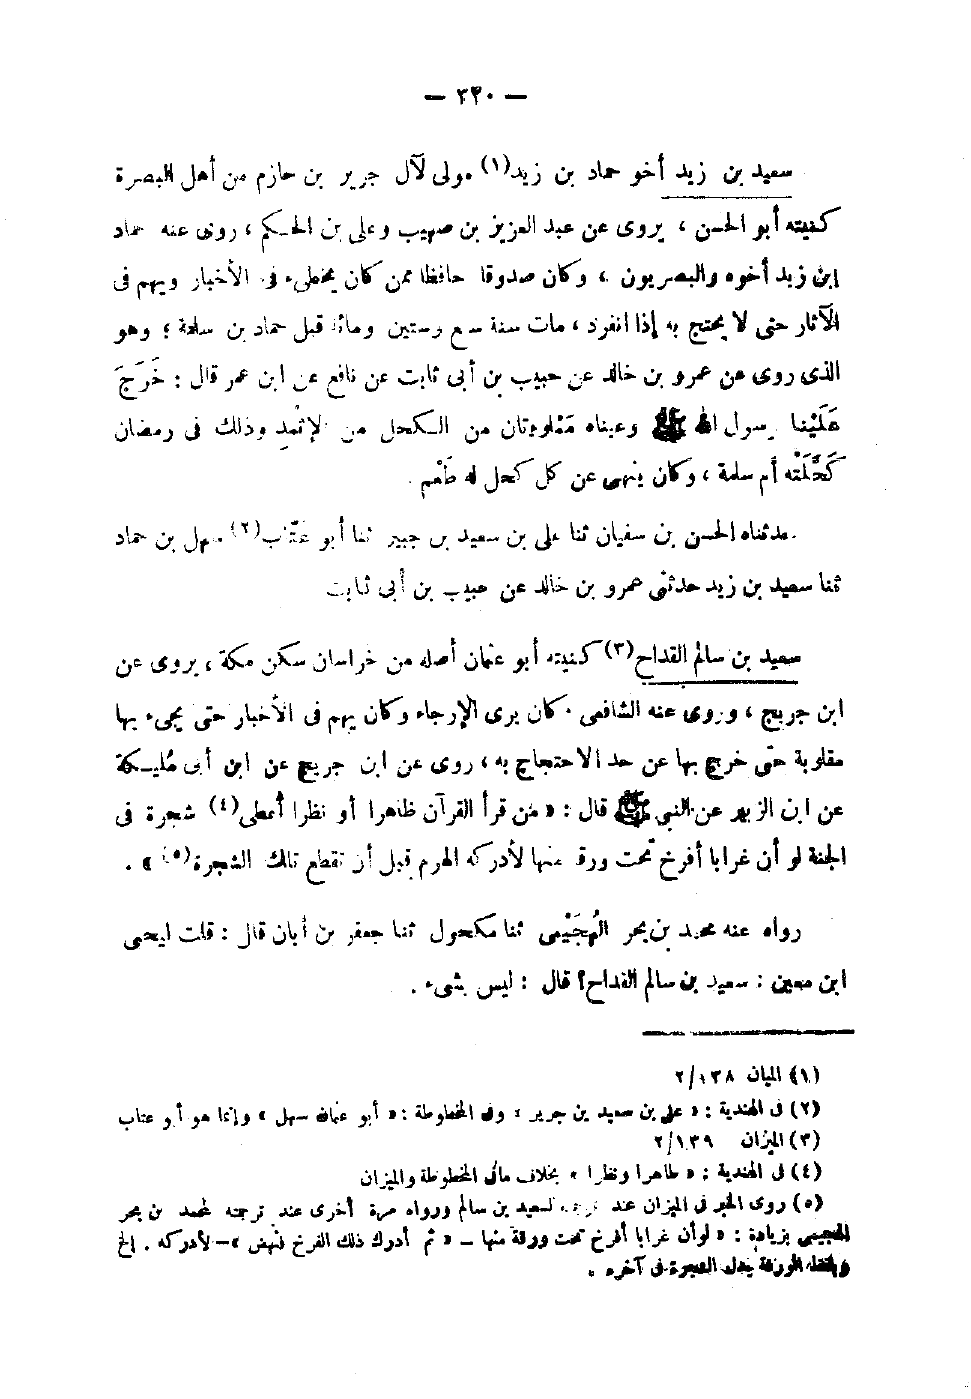 — ٣٢٠ —
سعيد بن زيد أخو حماد بن زيد(١) مولى لآل جرير بن حازم من أهل البصرة
كنيته أبو الحسن ، يروى عن عبد العزيز بن صهيب وعلى بن الحكم ، روى عنه حماد
ابن زيد أخوه والبصريون ، وكان صدوقا حافظا ممن كان يخطىء فى الأخبار ويهم فى
الآثار حتى لا يحتج به إذا انفرد ، مات سنة سبع وستين ومائة قبل حماد بن سلمة ؛ وهو
الذى روى عن عمرو بن خالد عن حبيب بن أبى ثابت عن نافع عن ابن عمر قال : خَرَجَ
عَلَيْنا رسول الله ﷺ وعيناه مَمْلوءتان من الكحل من الإثْمدِ وذلك فى رمضان
كَحَّلَتْه أم سلمة ، وكان ينهى عن كل كحل له طَعْم .
حدثناه الحسن بن سفيان ثنا على بن سعيد بن جبير ثنا أبو عتّاب(٢) سهل بن حماد
ثنا سعيد بن زيد حدثنى عمرو بن خالد عن حبيب بن أبى ثابت
سعيد بن سالم القداح(٣) كنيته أبو عثمان أصله من خراسان سكن مكة ، يروى عن
ابن جريج ، وروى عنه الشافعى . كان يرى الإرجاء وكان يهم فى الأخبار حتى يجىء بها
مقلوبة حتى خرج بها عن حد الاحتجاج به ، روى عن ابن جريج عن ابن أبى مُليكة
عن ابن الزبير عن النبى ﷺ قال : « من قرأ القرآن ظاهرا أو نظرا أعطى(٤) شجرة فى
الجنة لو أن غرابا أفرخ تحت ورقة منها لأدركه الهرم قبل أن تقطع تلك الشجرة(٥) » .
رواه عنه محمد بن بحر الهُجَيْمى ثنا مكحول ثنا جعفر بن أبان قال : قلت ليحيى
ابن معين : سعيد بن سالم القداح؟ قال : ليس بشىء .
(١) الميزان ٢/١٣٨
(٢) فى الهندية : « على بن سعيد بن جرير » وفى المخطوطة : « أبو عثمان سهل » وإنما هو أبو عتاب
(٣) الميزان ٢/١٣٩
(٤) فى الهندية : « ظاهرا ونظرا » بخلاف مافى المخطوطة والميزان
(٥) روى الخبر فى الميزان عند ترجمة لسعيد بن سالم ورواه مرة أخرى عند ترجمته لمحمد بن بحر
الهجيمى بزيادة : « لوأن غرابا أفرخ تحت ورقة منها – « ثم أدرك ذلك الفرخ فنهض » – لأدركه . الخ
الورقة بدل الشجرة فى آخره .